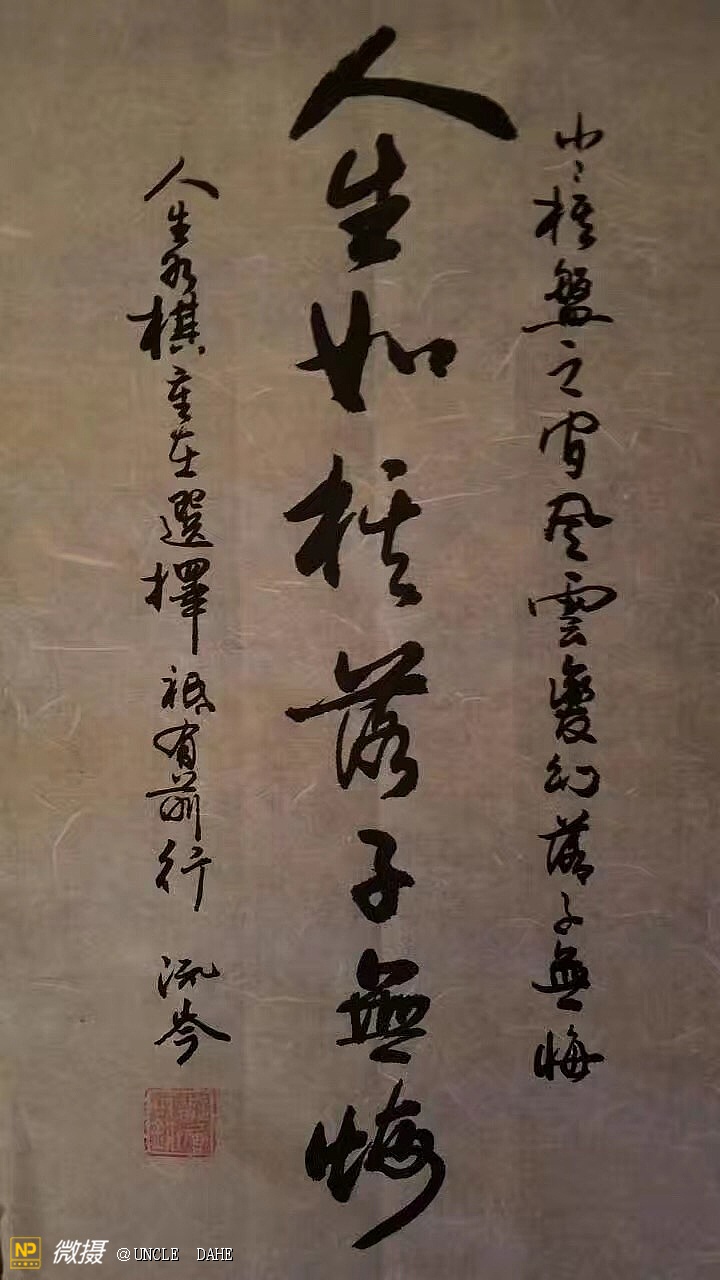 小小棋盤之間風雲變幻落子無悔
人生如棋落子無悔
人生如棋重在選擇祇有前行
流岑
NP 微摄 @UNCLE DAHE